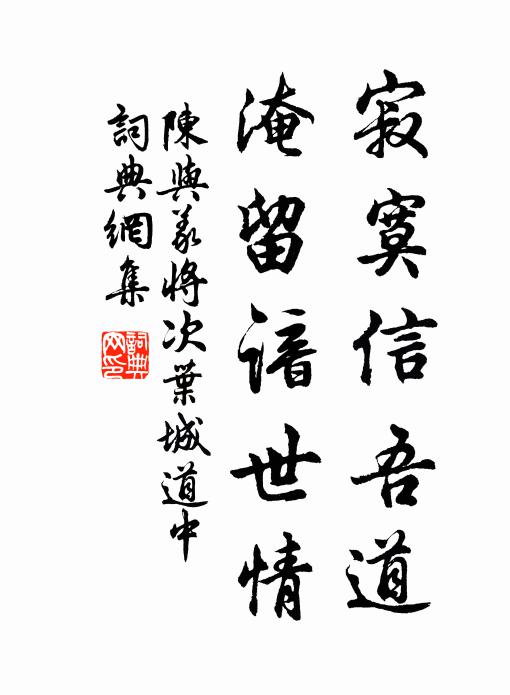 寂寞信吾道
淹留諳世情
陳與義將次葉城道中
詞典網集
詞典网印